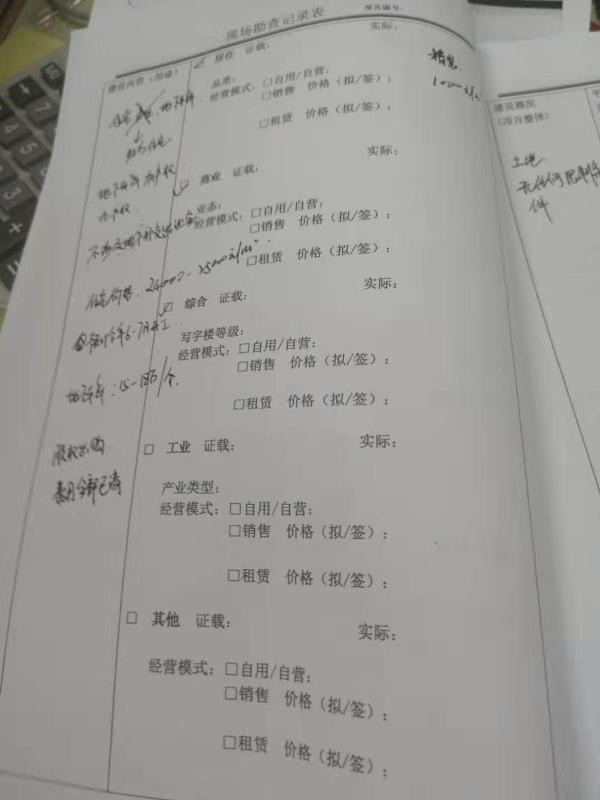 现场勘查记录表
报告编号:
建设内容(用途)
居住 证载: 实际:
品质:
经营模式: □自用/自营:
□销售 价格(拟/签):
□租赁 价格(拟/签):
精装
住宅
地下车库
有产权
商业 证载: 实际:
业态:
经营模式: □自用/自营:
□销售 价格(拟/签):
□租赁 价格(拟/签):
住宅价格: 24000-25000元/m²
综合 证载: 实际:
写字楼等级:
经营模式: □自用/自营:
□销售 价格(拟/签):
□租赁 价格(拟/签):
预计今年6-7月开工
地下车: 15-18万/个
股权收购
□ 工业 证载: 实际:
产业类型:
经营模式: □自用/自营:
□销售 价格(拟/签):
□租赁 价格(拟/签):
□ 其他 证载: 实际:
经营模式: □自用/自营:
□销售 价格(拟/签):
□租赁 价格(拟/签):
建设概况
(项目整体)
土地
无任何限制条
件